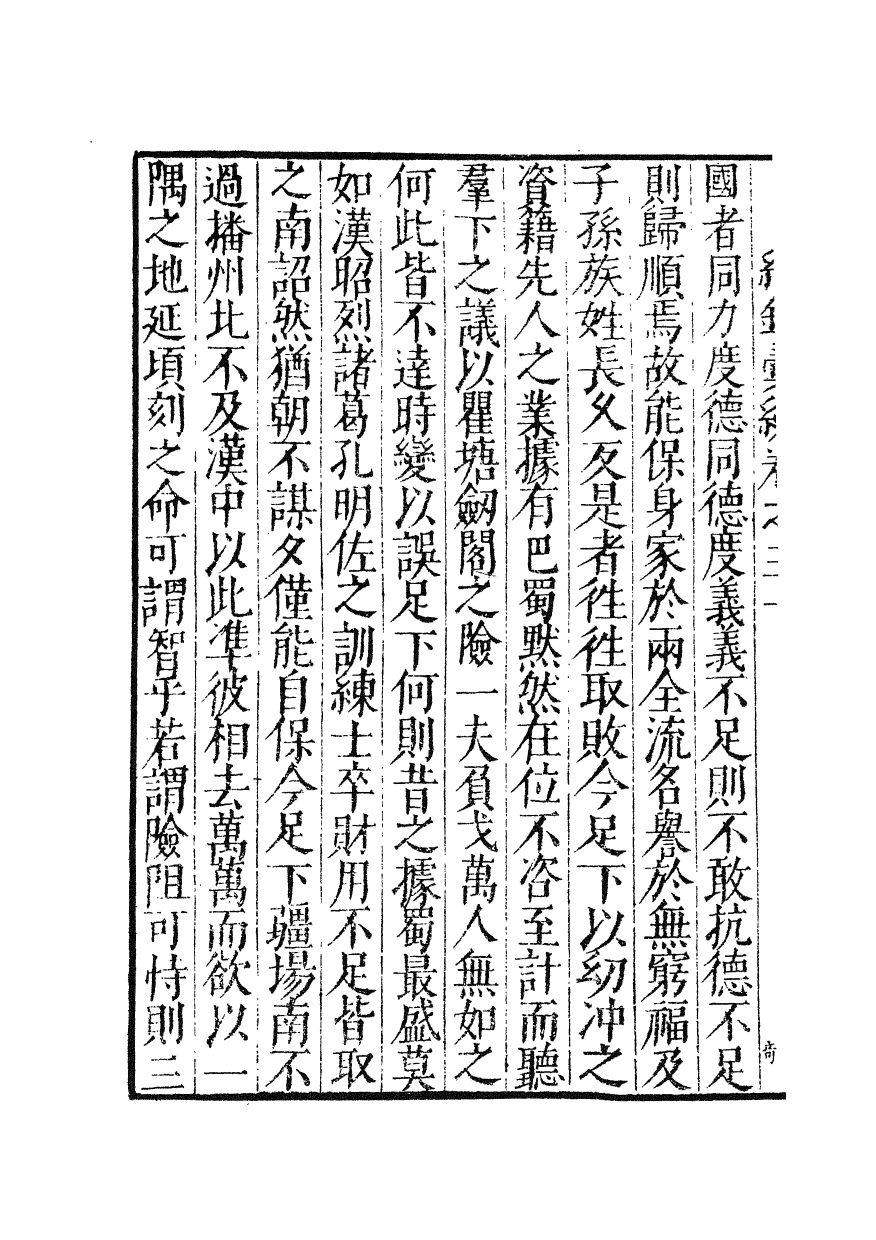 國者同力度德同德度義義不足則不敢抗德不足
則歸順焉故能保身家於兩全流名譽於無窮福及
子孫族姓長久反是者徃徃取敗今足下以幼冲之
資藉先人之業據有巴蜀默然在位不咨至計而聽
羣下之議以瞿塘劔閣之險一夫負戈萬人無如之
何此皆不達時變以誤足下何則昔之據蜀最盛莫
如漢昭烈諸葛孔明佐之訓練士卒財用不足皆取
之南詔然猶朝不謀夕僅能自保今足下疆場南不
過播州北不及漢中以此準彼相去萬萬而欲以一
隅之地延頃刻之命可謂智乎若謂險阻可恃則三